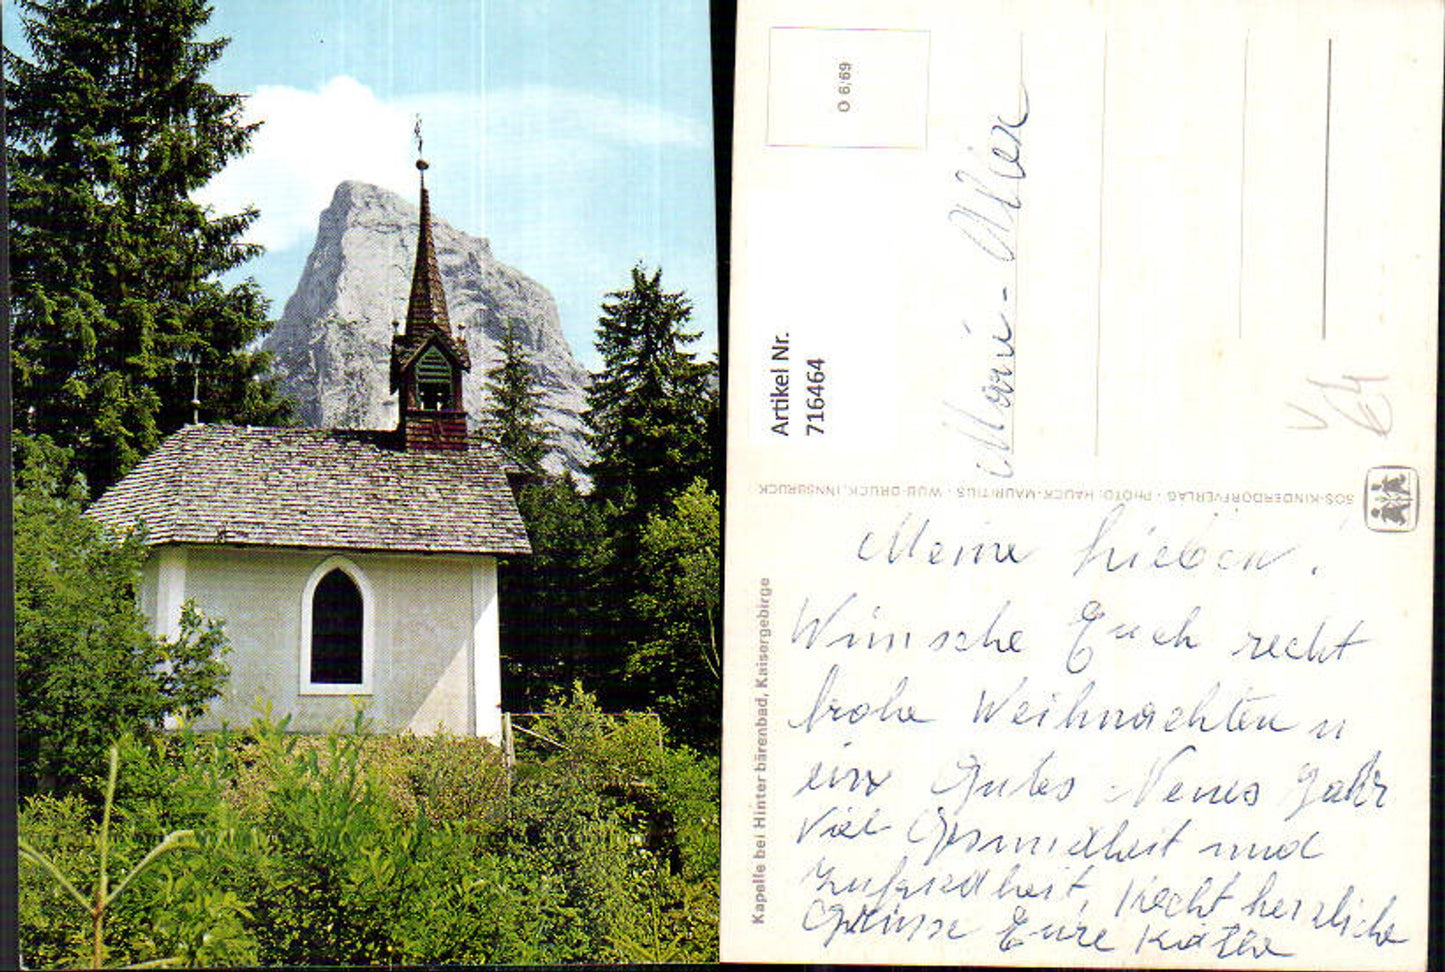 O 6/69
Artikel Nr.
716464
SOS-KINDERDORFVERLAG · PHOTO: HAUCK-MAURITIUS · WUB-DRUCK, INNSBRUCK
Kapelle bei Hinterbärenbad, Kaisergebirge
Meine Lieben!
Wünsche Euch recht
frohe Weihnachten u
ein Gutes Neues Jahr
Viel Gesundheit und
Zufriedheit, Recht herzliche
Grüsse Eure Käthe